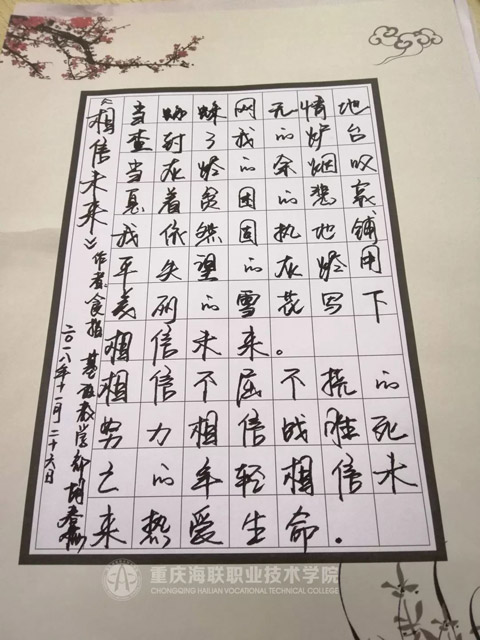 《相信未来》作者:食指 基础教学部
二〇一八年十一月二十六日
当蜘蛛网无情地
查封了我的炉台
当灰烬的余烟叹
息着贫困的悲哀
我依然固执地铺
平失望的灰烬用
美丽的雪花写下
相信未来。
相信不屈不挠的
努力相信战胜死
亡的年轻相信未
来热爱生命.
重庆海联职业技术学院
CHONGQING HAILIAN VOCATIONAL TECHNICAL COLLEGE